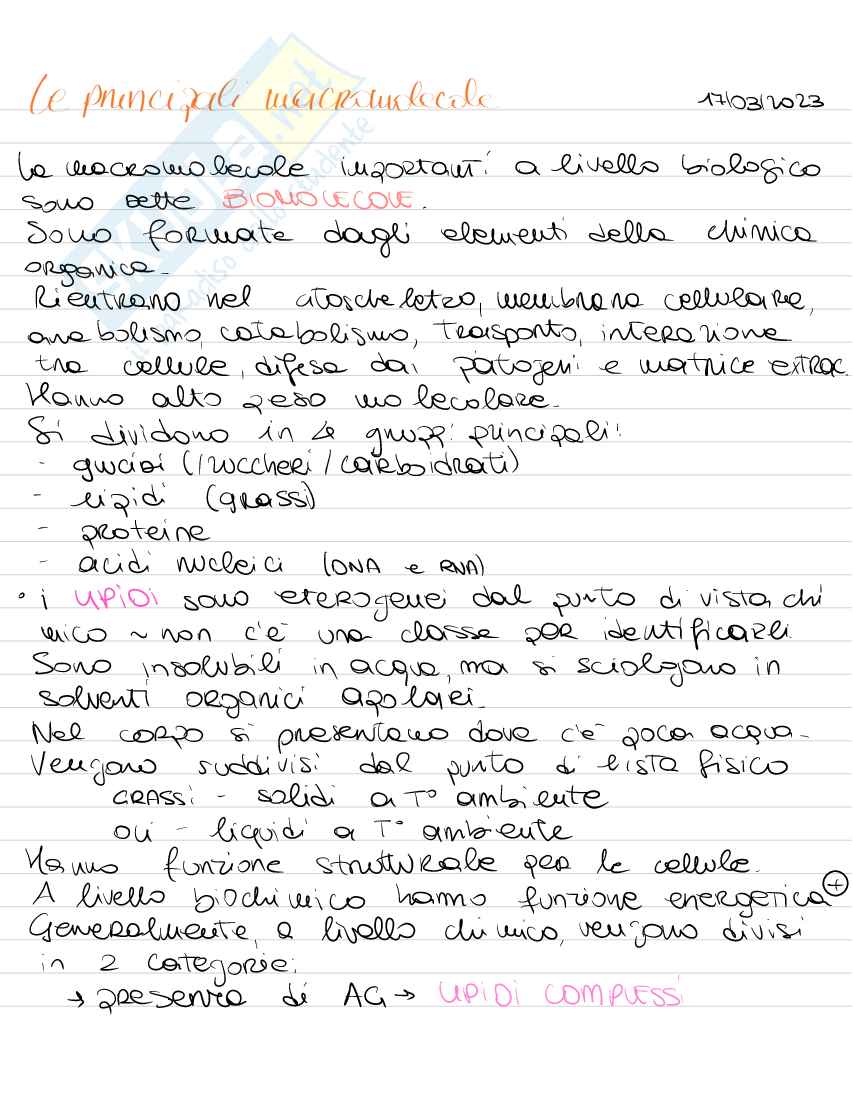 Le principali macromolecole 17/03/2023
Le macromolecole importanti a livello biologico
sono dette BIOMOLECOLE.
Sono formate dagli elementi della chimica
organica.
Rientrano nel citoscheletro, membrana cellulare,
anabolismo, catabolismo, trasporto, interazione
tra cellule, difesa dai patogeni e matrice extrac.
Hanno alto peso molecolare.
Si dividono in 4 gruppi principali:
- glucidi (/zuccheri/carboidrati)
- lipidi (grassi)
- proteine
- acidi nucleici (DNA e RNA)
• i LIPIDI sono eterogenei dal punto di vista chi
mico ~ non c'è una classe per identificarli.
Sono insolubili in acqua, ma si sciolgono in
solventi organici apolari.
Nel corpo si presentano dove c'è poca acqua.
Vengono suddivisi dal punto di vista fisico
GRASSI - solidi a T° ambiente
OLI - liquidi a T° ambiente
Hanno funzione strutturale per le cellule.
A livello biochimico hanno funzione energetica +
Generalmente, a livello chimico, vengono divisi
in 2 categorie:
→ presenza di AG → LIPIDI COMPLESSI
SKUOLA.net
il paradiso dello studente